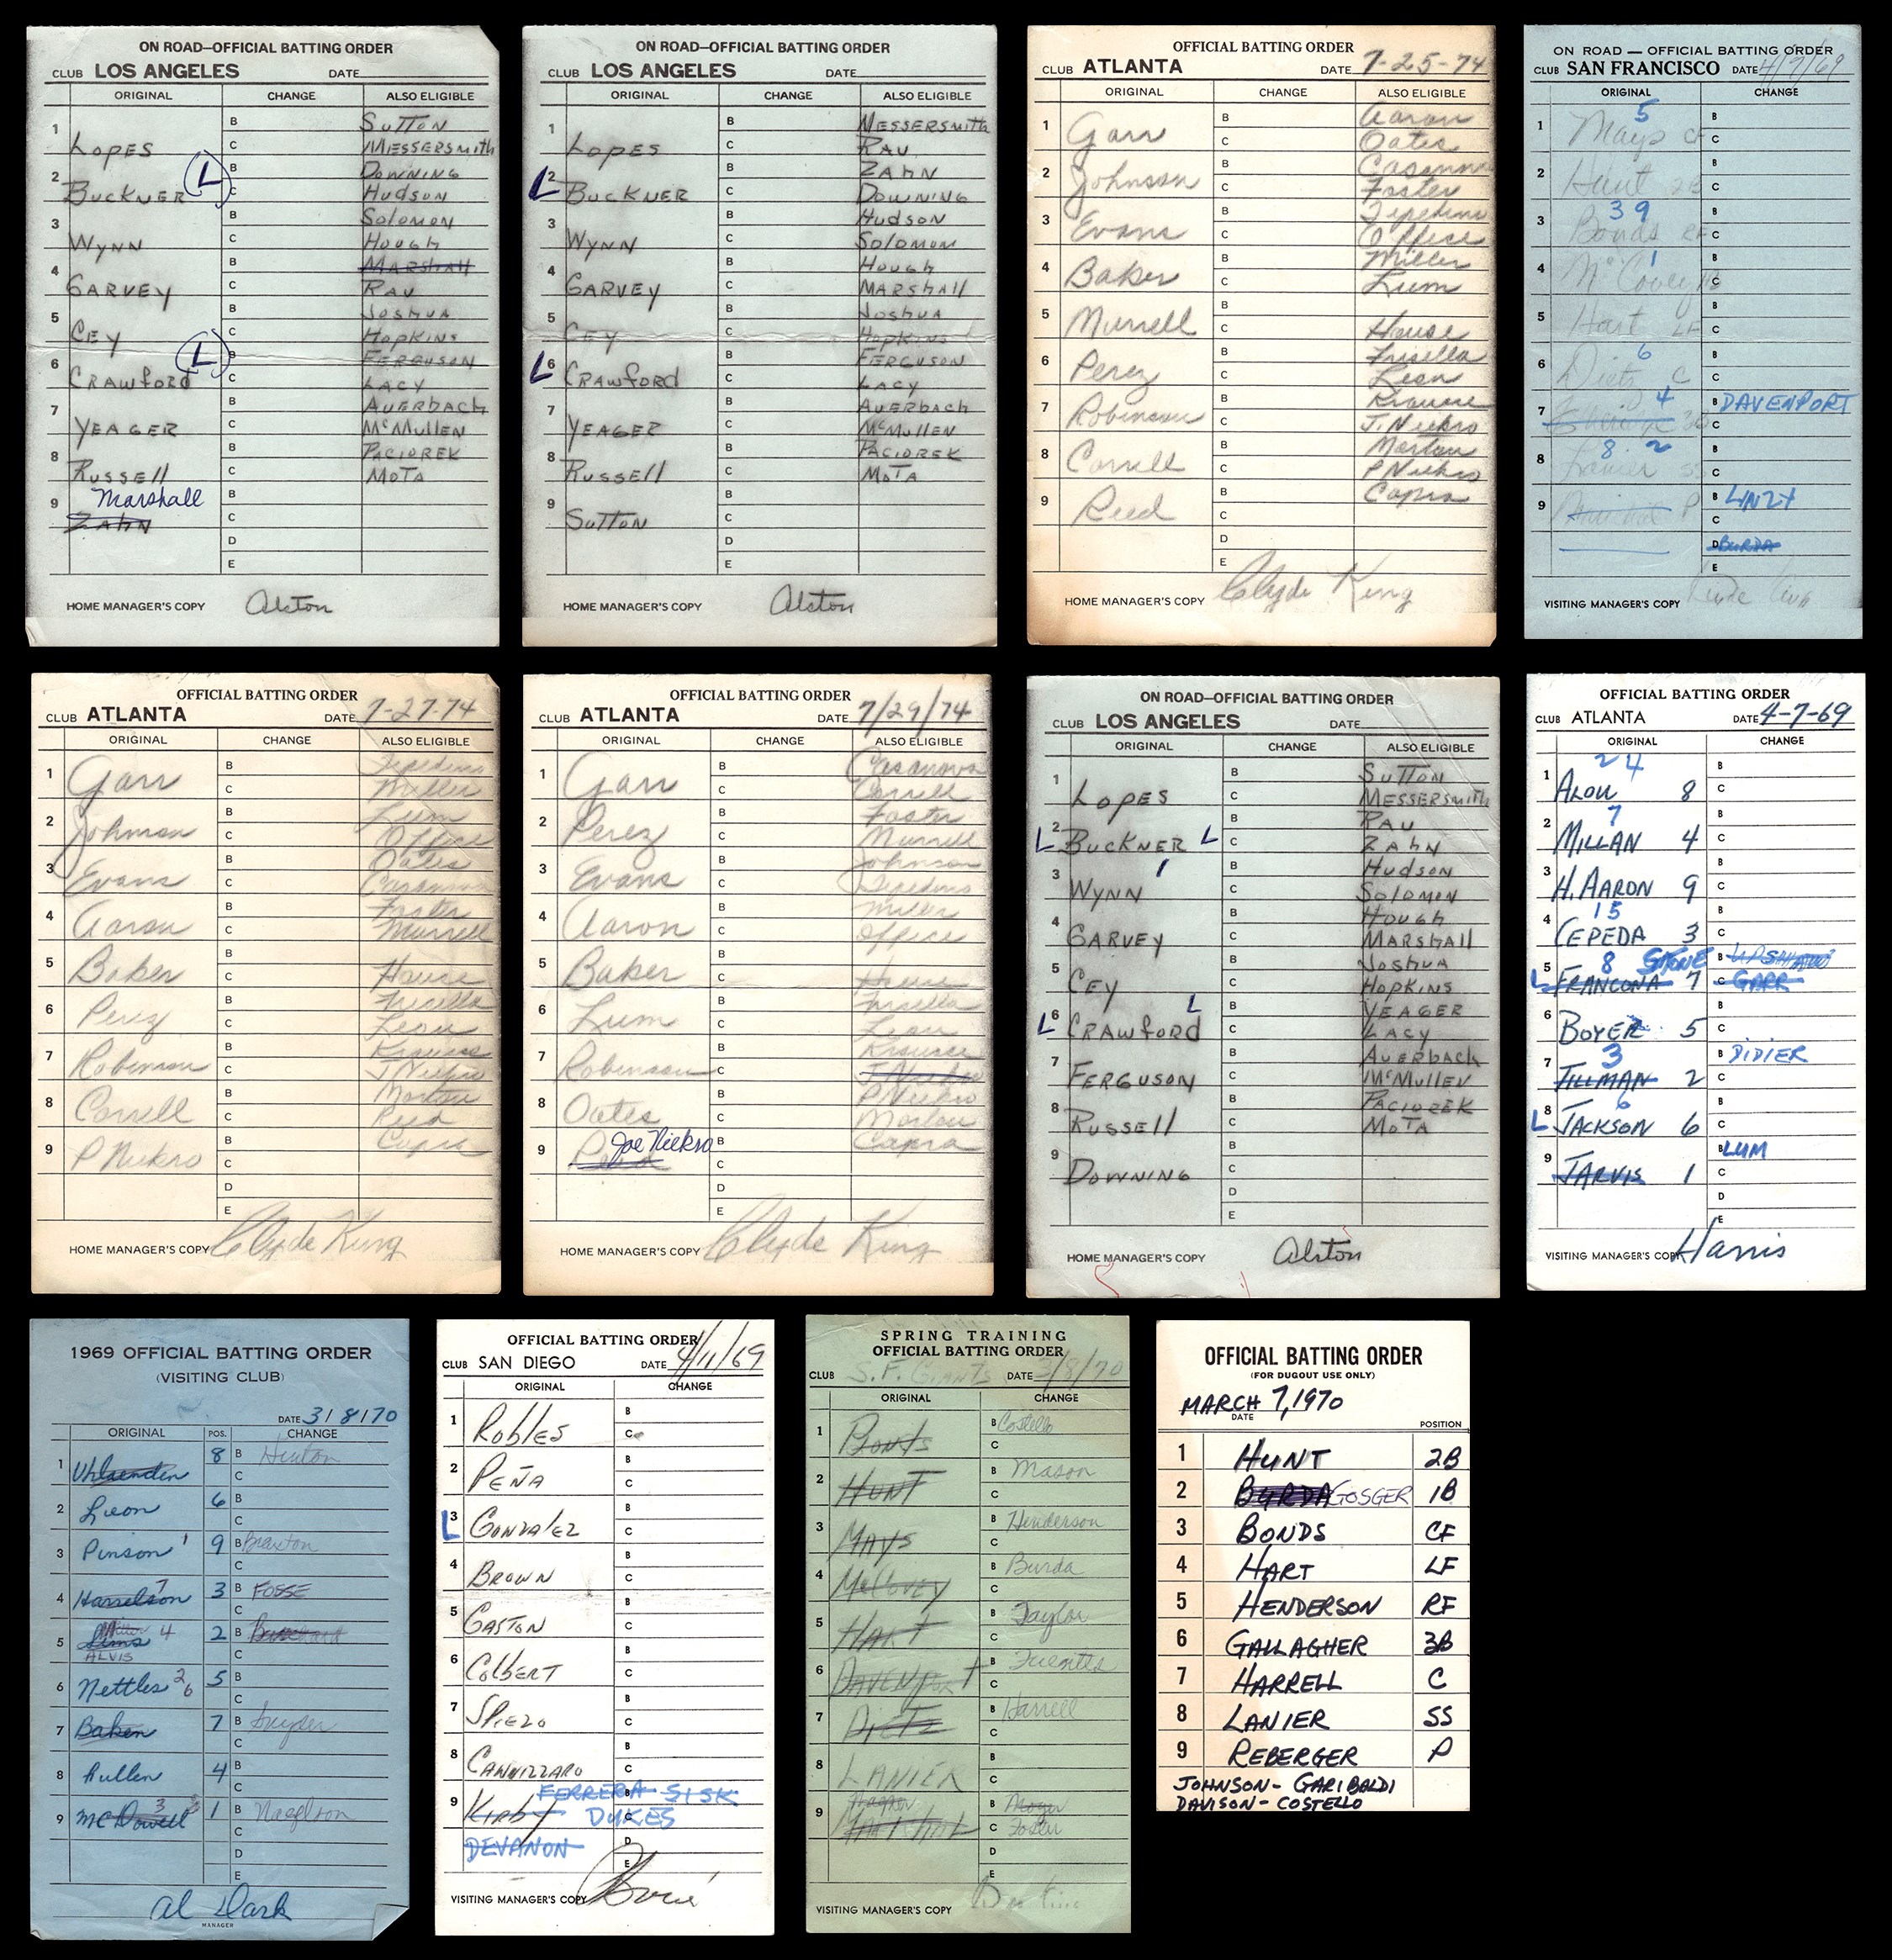 ON ROAD—OFFICIAL BATTING ORDER
CLUB LOS ANGELES DATE
ORIGINAL CHANGE ALSO ELIGIBLE
1 LOPES B SUTTON
C MESSERSMITH
2 BUCKNER L B DOWNING
C HUDSON
3 WYNN B SOLOMON
C HOUGH
4 GARVEY B MARSHALL
C RAU
5 CEY B JOSHUA
C HOPKINS
6 CRAWFORD L B FERGUSON
C LACY
7 YEAGER B AUERBACH
C McMULLEN
8 RUSSELL B PACIOREK
C MOTA
9 Marshall B
ZAHN C
D
E
HOME MANAGER'S COPY Alston
ON ROAD—OFFICIAL BATTING ORDER
CLUB LOS ANGELES DATE
ORIGINAL CHANGE ALSO ELIGIBLE
1 LOPES B MESSERSMITH
C RAU
L 2 BUCKNER B ZAHN
C DOWNING
3 WYNN B HUDSON
C SOLOMON
4 GARVEY B HOUGH
C MARSHALL
5 CEY B JOSHUA
C HOPKINS
L 6 CRAWFORD B FERGUSON
C LACY
7 YEAGER B AUERBACH
C McMULLEN
8 RUSSELL B PACIOREK
C MOTA
9 SUTTON B
C
D
E
HOME MANAGER'S COPY Alston
OFFICIAL BATTING ORDER
CLUB ATLANTA DATE 7-25-74
ORIGINAL CHANGE ALSO ELIGIBLE
1 Garr B Aaron
C Oates
2 Johnson B Casanova
C Foster
3 Evans B Tepedino
C Office
4 Baker B Miller
C Lum
5 Murrell B
C House
6 Perez B Frisella
C Leon
7 Robinson B Krausse
C J. Niekro
8 Correll B Morton
C P Niekro
9 Reed B Capra
C
D
E
HOME MANAGER'S COPY Clyde King
ON ROAD — OFFICIAL BATTING ORDER
CLUB SAN FRANCISCO DATE 4/7/69
ORIGINAL CHANGE
5
1 Mays CF B
C
2 Hunt 2B B
C
39
3 Bonds RF B
C
1
4 McCovey 1B B
C
5 Hart LF B
C
6
6 Dietz C B
C
4
7 3B B DAVENPORT
C
8 2
8 Lanier SS B
C
9 P B LINZY
C
D BURDA
E
VISITING MANAGER'S COPY Clyde King
OFFICIAL BATTING ORDER
CLUB ATLANTA DATE 7-27-74
ORIGINAL CHANGE ALSO ELIGIBLE
1 Garr B Tepedino
C Miller
2 Johnson B Lum
C Office
3 Evans B Oates
C Casanova
4 Aaron B Foster
C Murrell
5 Baker B
C House
6 Perez B Frisella
C Leon
7 Robinson B Krausse
C J Niekro
8 Correll B Morton
C Reed
9 P Niekro B Capra
C
D
E
HOME MANAGER'S COPY Clyde King
OFFICIAL BATTING ORDER
CLUB ATLANTA DATE 7/29/74
ORIGINAL CHANGE ALSO ELIGIBLE
1 Garr B Casanova
C Correll
2 Perez B Foster
C Murrell
3 Evans B Johnson
C Tepedino
4 Aaron B Miller
C Office
5 Baker B
C House
6 Lum B Frisella
C Leon
7 Robinson B Krausse
C J Niekro
8 Oates B P Niekro
C Morton
9 Joe Niekro B Capra
C
D
E
HOME MANAGER'S COPY Clyde King
ON ROAD—OFFICIAL BATTING ORDER
CLUB LOS ANGELES DATE
ORIGINAL CHANGE ALSO ELIGIBLE
1 LOPES B SUTTON
C MESSERSMITH
2 B RAU
L BUCKNER L C ZAHN
3 WYNN B HUDSON
C SOLOMON
4 GARVEY B HOUGH
C MARSHALL
5 CEY B JOSHUA
C HOPKINS
6 L B YEAGER
L CRAWFORD C LACY
7 FERGUSON B AUERBACH
C McMULLEN
8 RUSSELL B PACIOREK
C MOTA
9 DOWNING B
C
D
E
HOME MANAGER'S COPY Alston
OFFICIAL BATTING ORDER
CLUB ATLANTA DATE 4-7-69
ORIGINAL CHANGE
24
1 ALOU 8 B
C
7
2 MILLAN 4 B
C
3 H. AARON 9 B
C
15
4 CEPEDA 3 B
C
8 STONE
5 B UPSHAW
L FRANCONA 7 C GARR
6 BOYER 5 B
C
3
7 TILLMAN 2 B DIDIER
C
6
8 B
L JACKSON 6 C
9 JARVIS 1 B LUM
C
D
E
VISITING MANAGER'S COPY Harris
1969 OFFICIAL BATTING ORDER
(VISITING CLUB)
DATE 3/8/70
ORIGINAL POS. CHANGE
1 Uhlaender 8 B Hinton
C
2 Leon 6 B
C
3 Pinson 1 9 B Braxton
C
4 Harrelson 7 3 B FOSSE
C
Miller
5 Sims 4 2 B
ALVIS C
6 Nettles 2 6 5 B
C
7 Baker 7 B Snyder
C
8 Fullen 4 B
C
9 McDowell 3 1 B Nagelson
C
D
E
Al Dark
MANAGER
OFFICIAL BATTING ORDER
CLUB SAN DIEGO DATE 4/11/69
ORIGINAL CHANGE
1 ROBLES B
C
2 PEÑA B
C
L 3 GONZALEZ B
C
4 BROWN B
C
5 GASTON B
C
6 COLBERT B
C
7 SPIEZO B
C
8 CANNIZZARO B
C
FERRERA SISK
9 KIRBY DUKES B
C
DEVANON D
E
VISITING MANAGER'S COPY
SPRING TRAINING
OFFICIAL BATTING ORDER
CLUB S.F. Giants DATE 3/8/70
ORIGINAL CHANGE
1 BONDS B Costello
C
2 HUNT B Mason
C
3 MAYS B Henderson
C
4 McCOVEY B Burda
C
5 HART B Taylor
C
6 DAVENPORT B Fuentes
C
7 DIETZ B Harrell
C
8 LANIER B
C
9 B
C Foster
D
E
VISITING MANAGER'S COPY
OFFICIAL BATTING ORDER
(FOR DUGOUT USE ONLY)
MARCH 7, 1970
DATE
POSITION
1 HUNT 2B
2 BURDA GOSGER 1B
3 BONDS CF
4 HART LF
5 HENDERSON RF
6 GALLAGHER 3B
7 HARRELL C
8 LANIER SS
9 REBERGER P
JOHNSON - GARIBALDI
DAVISON - COSTELLO